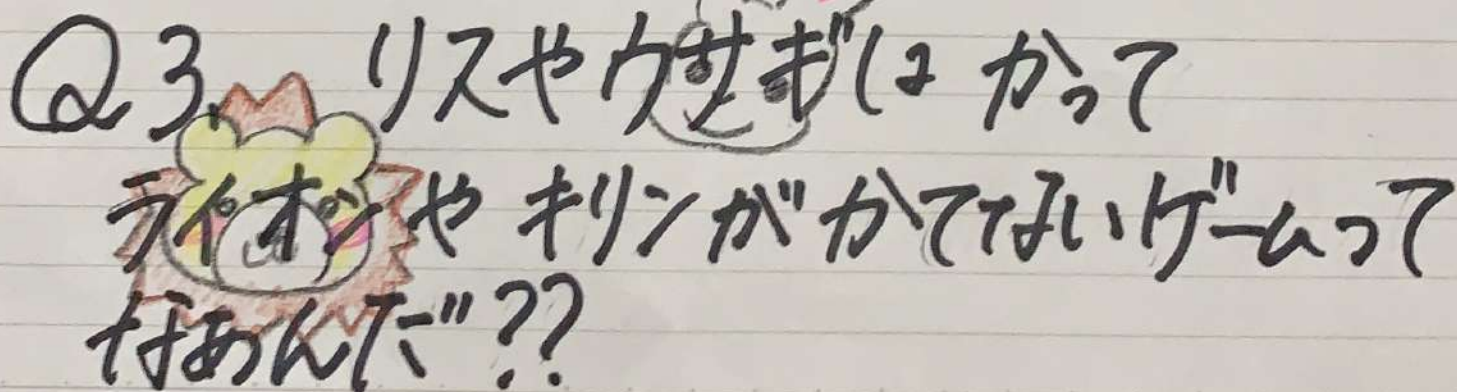 Q3. リスやウサギは かって
ライオンや キリンが かてないゲームって
なあんだ??